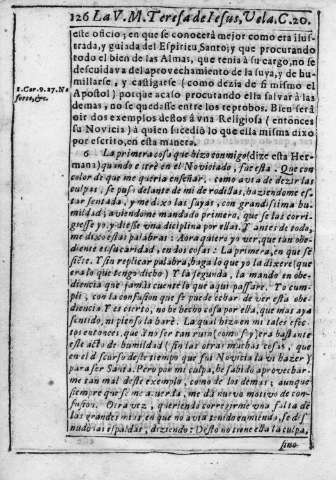 126 La V. M. Teresa de Iesus, Vela. C. 20.
este oficio; en que se conocerà mejor como era ilus-
trada, y guiada del Espiritu Santo; y que procurando
todo el bien de las Almas, que tenia à su cargo, no se
descuidava del aprovechamiento de la suya, y de hu-
millarse, y castigarse (como dezia de si mismo el
1. Cor. 9. 27. Ne
Apostol) porque acaso procurando ella salvar à las
demas, no se quedasse entre los reprobos. Bien serà
oir dos exemplos destos à vna Religiosa (entonces
su Novicia) à quien sucediò lo que ella misma dixo
por escrito, en esta manera.
6 La primera cosa que hizo conmigo (dize esta Her-
mana) quando entrè en el Noviciado, fue esta. Que con
color de que me queria enseñar, como avia de dezir las
culpas, se puso delante de mi de rodillas, haziendome es-
tar sentada, y me dixo las suyas, con grandissima hu-
mildad; aviendome mandado primero, que se las corri-
giesse yo, y diesse vna diciplina por ellas. Y antes de todo,
me dixo estas palabras: Aora quiero yo ver, que tan obe-
diente es su caridad, en dos cosas: La primera, en que se
siente. Y sin replicar palabra, haga lo que yo la dixere (que
era lo que tengo dicho) Y la segunda, la mando en obe-
diencia que jamàs cuente lo que aqui passare. Yo cum-
pli, con la confusion que se puede echar de ver esta obe-
diencia. Y es cierto, no he hecho cosa por ella, que mas aya
sentido, ni pienso la harè. La qual hizo en mi tales efec-
tos entonces, que à no ser tan ruin como soy, era bastante
este acto de humildad (sin otras muchas cosas, que
en el discurso deste tiempo que fui Novicia la vi hazer)
para ser Santa. Pero por mi culpa, he sabido aprovechar-
me tan mal deste exemplo, como de los demas; aunque
siempre que se me acuerda, me dà nuevo motivo de con-
fusion. Otra vez, queriendo corregirme vna falta de
las grandes mias en que no avia tenido enmienda, se des-
nudò las espaldas, diziendo: Desto no tiene ella la culpa,
sino